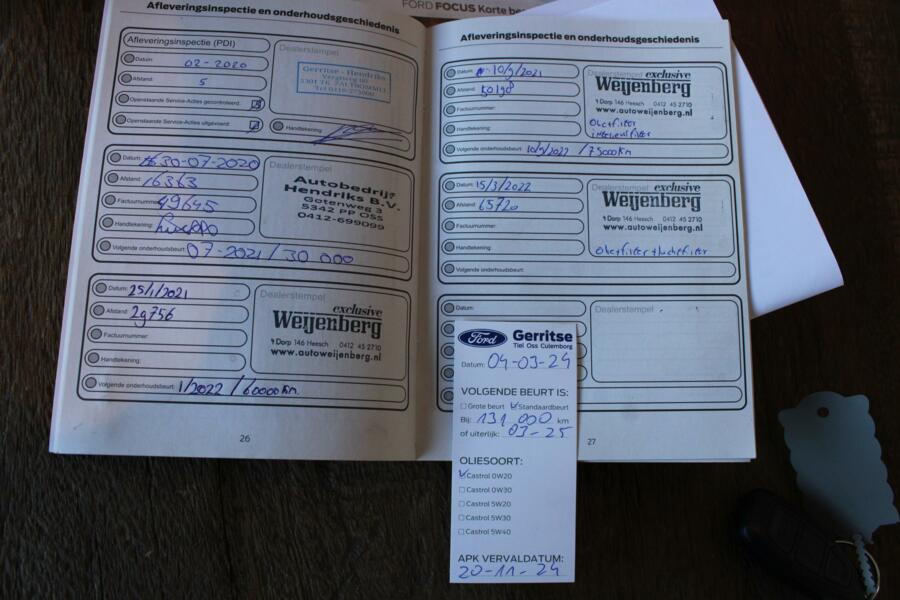 FORD FOCUS Korte be
Afleveringsinspectie en onderhoudsgeschiedenis
Afleveringsinspectie (PDI)
Datum: 02-2020
Afstand: 5
Openstaande Service-Acties gecontroleerd:
Openstaande Service-Acties uitgevoerd:
Dealerstempel
Gerritse - Hendriks
Handtekening:
Datum: 30-07-2020
Afstand: 16363
Factuurnummer: 49645
Handtekening:
Volgende onderhoudsbeurt: 07-2021/30 000
Dealerstempel
Autobedrijf
Hendriks B.V.
Gotenweg 3
5342 PP OSS
0412-699099
Datum: 25/1/2021
Afstand: 29756
Factuurnummer:
Handtekening:
Volgende onderhoudsbeurt: 1/2022 /60000km.
Dealerstempel
exclusive
Weijenberg
't Dorp 146 Heesch 0412 45 2710
www.autoweijenberg.nl
26
Afleveringsinspectie en onderhoudsgeschiedenis
Datum: 10/9/2021
Afstand: 50198
Factuurnummer:
Handtekening:
Volgende onderhoudsbeurt: 10/9/2022 /75000km
Dealerstempel
exclusive
Weijenberg
't Dorp 146 Heesch 0412 45 2710
www.autoweijenberg.nl
Oliefilter
interieurfilter
Datum: 15/3/2022
Afstand: 65720
Factuurnummer:
Handtekening:
Volgende onderhoudsbeurt:
Dealerstempel
exclusive
Weijenberg
't Dorp 146 Heesch 0412 45 2710
www.autoweijenberg.nl
Oliefilter + luchtfilter
Datum:
Dealerstempel
27
Ford Gerritse
Tiel Oss Culemborg
Datum: 04-03-24
VOLGENDE BEURT IS:
Grote beurt Standaardbeurt
Bij: 131 000 km
of uiterlijk: 03-25
OLIESOORT:
Castrol 0W20
Castrol 0W30
Castrol 5W20
Castrol 5W30
Castrol 5W40
APK VERVALDATUM:
20-11-24